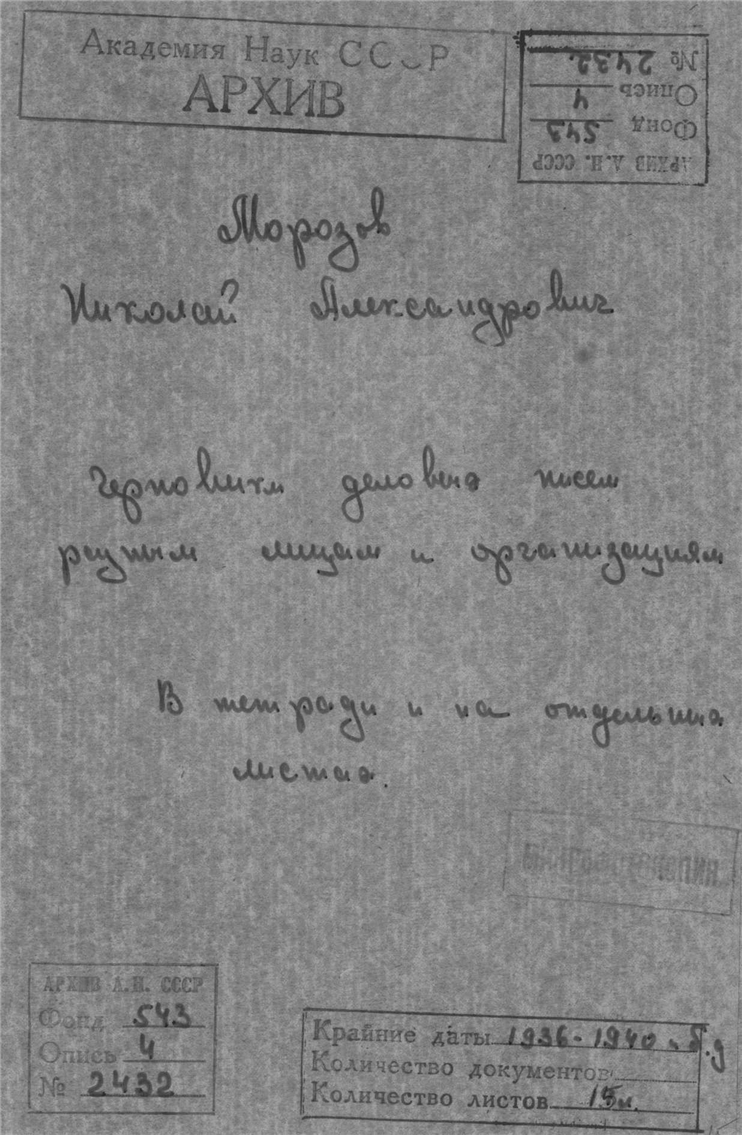 Академия Наук СССР
АРХИВ
№ 2432.
Опись 4
Фонд 543
АРХИВ А.Н. СССР
Морозов
Николай Александрович
Черновики деловых писем
разным лицам и организациям
В тетради и на отдельных
листах.
АРХИВ А.Н. СССР
Фонд 543
Опись 4
№ 2432
Крайние даты 1936-1940, б.д
Количество документов
Количество листов 15л.